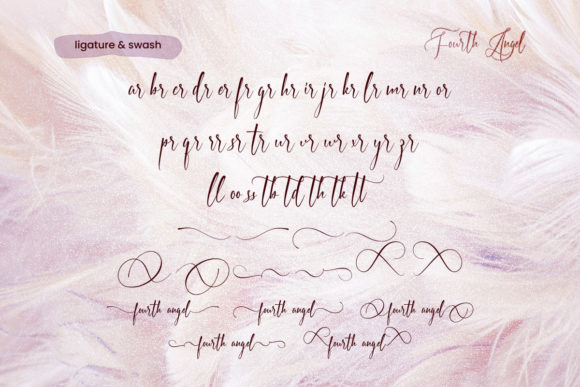 ligature & swash
Fourth Angel
ar br cr dr er fr gr hr ir jr kr lr mr nr or
pr qr rr sr tr ur vr wr xr yr zr
ll oo ss tb td th tk tl
fourth angel fourth angel fourth angel
fourth angel fourth angel